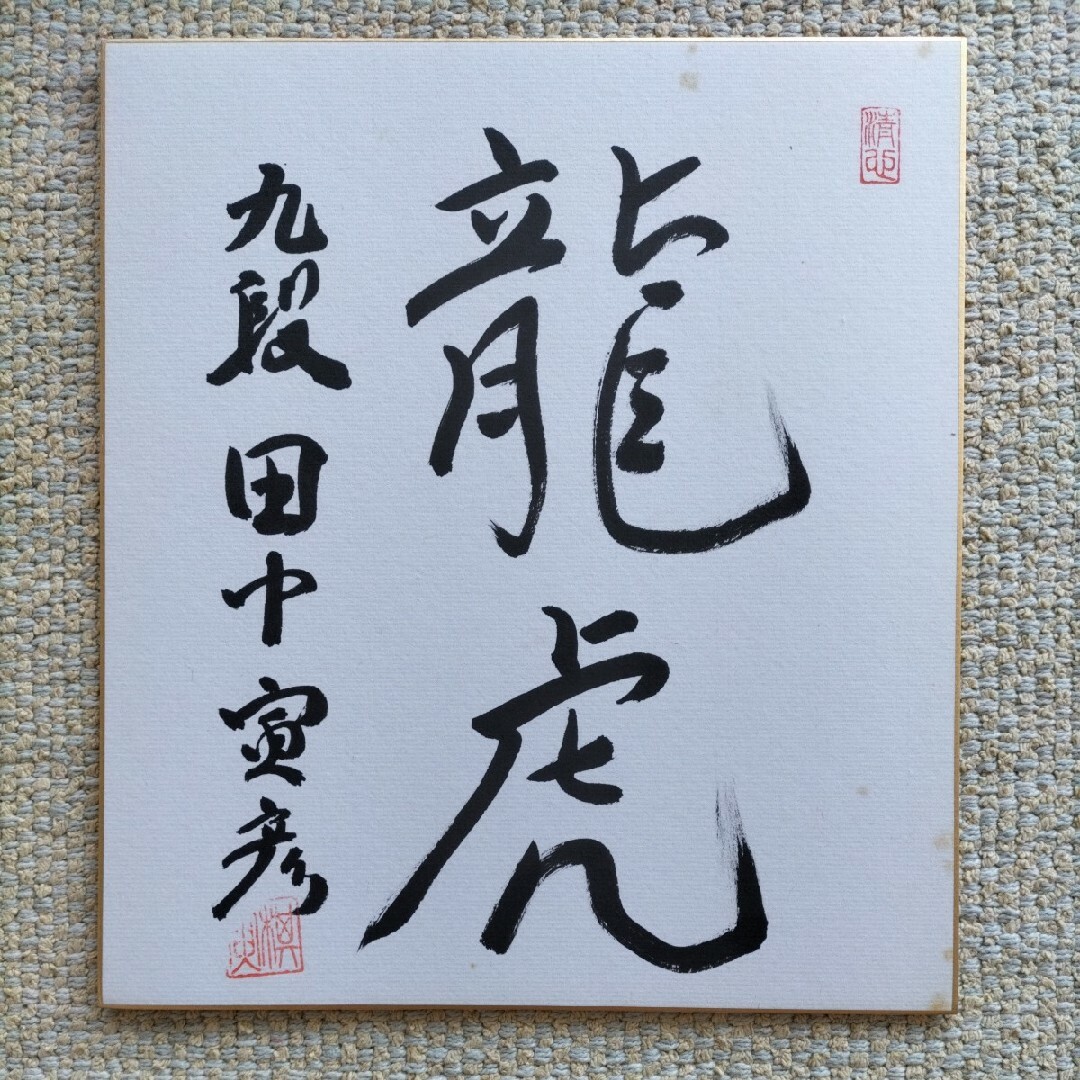 清心
龍虎
九段 田中寅彦